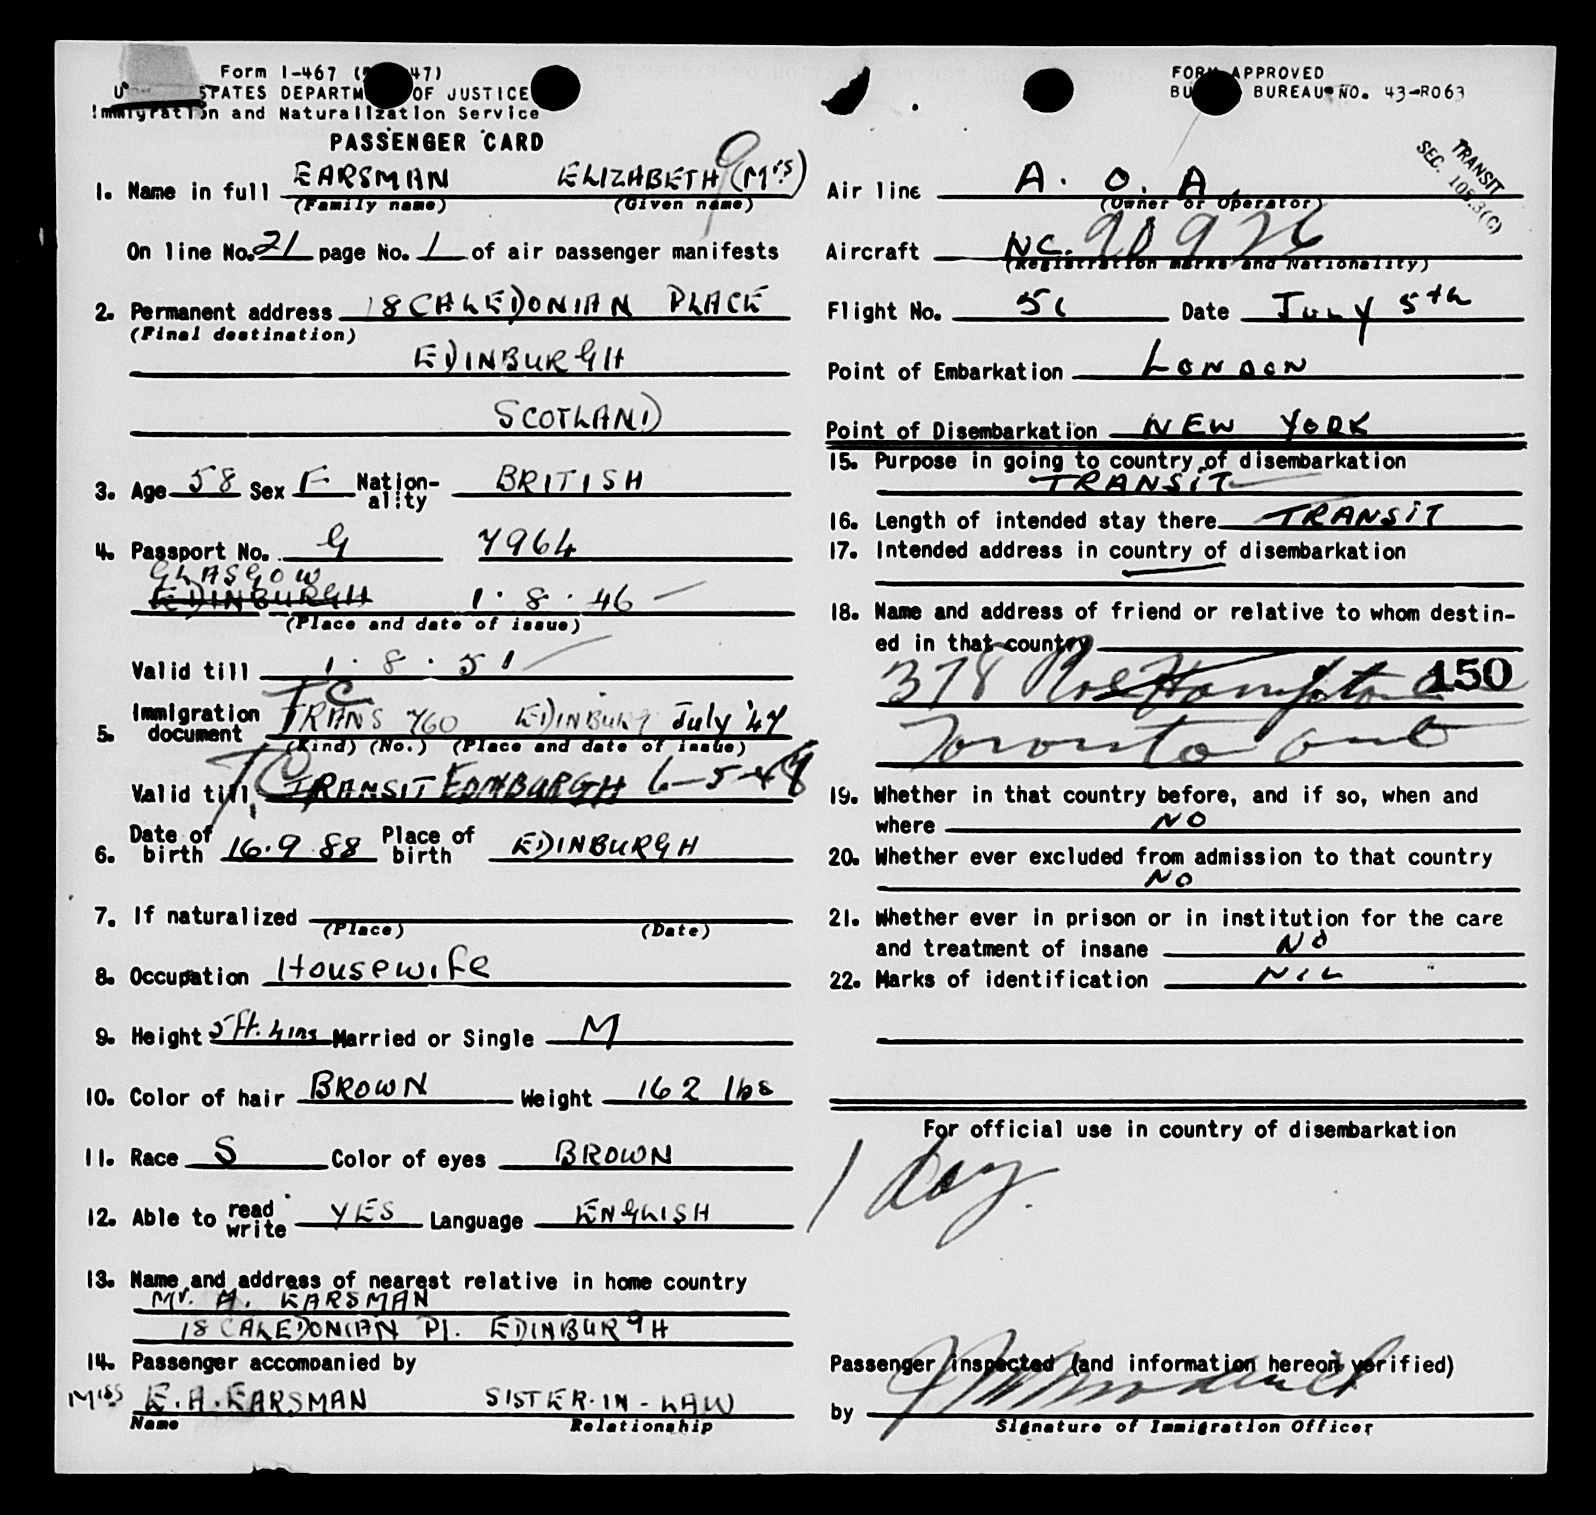 Form I-467 ( 47)
U STATES DEPARTM OF JUSTICE
Immigration and Naturalization Service
PASSENGER CARD
1. Name in full EARSMAN ELIZABETH G (Mrs)
(Family name) (Given name)
On line No. 21 page No. 1 of air passenger manifests
2. Permanent address 18 CALEDONIAN PLACE
(Final destination)
EDINBURGH
SCOTLAND
3. Age 58 Sex F Nation-ality BRITISH
4. Passport No. G 7964
GLASGOW
EDINBURGH 1.8.46
(Place and date of issue)
Valid till 1.8.51
5. Immigration document TC TRANS 760 EDINBURG July '47
(Kind) (No.) (Place and date of issue)
Valid till TC TRANSIT EDINBURGH 6-5-48
6. Date of birth 16.9.88 Place of birth EDINBURGH
7. If naturalized
(Place) (Date)
8. Occupation Housewife
9. Height 5 ft. 4 ins Married or Single M
10. Color of hair BROWN Weight 162 lbs
11. Race S Color of eyes BROWN
12. Able to read write YES Language ENGLISH
13. Name and address of nearest relative in home country
Mr. A. EARSMAN
18 CALEDONIAN Pl. EDINBURGH
14. Passenger accompanied by
Miss E.A. EARSMAN SISTER-IN-LAW
Name Relationship
FORM APPROVED
BU BUREAU NO. 43-R063
TRANSIT
SEC. 105.3(C)
Air line A.O.A.
(Owner or Operator)
Aircraft NC. 90926
(Registration marks and Nationality)
Flight No. 51 Date July 5th
Point of Embarkation LONDON
Point of Disembarkation NEW YORK
15. Purpose in going to country of disembarkation
TRANSIT
16. Length of intended stay there TRANSIT
17. Intended address in country of disembarkation
18. Name and address of friend or relative to whom destin-
ed in that country
378 RoeHampton 150
Toronto Ont
19. Whether in that country before, and if so, when and
where NO
20. Whether ever excluded from admission to that country
NO
21. Whether ever in prison or in institution for the care
and treatment of insane NO
22. Marks of identification NIL
For official use in country of disembarkation
1 day.
Passenger inspected (and information hereon verified)
by
Signature of Immigration Officer